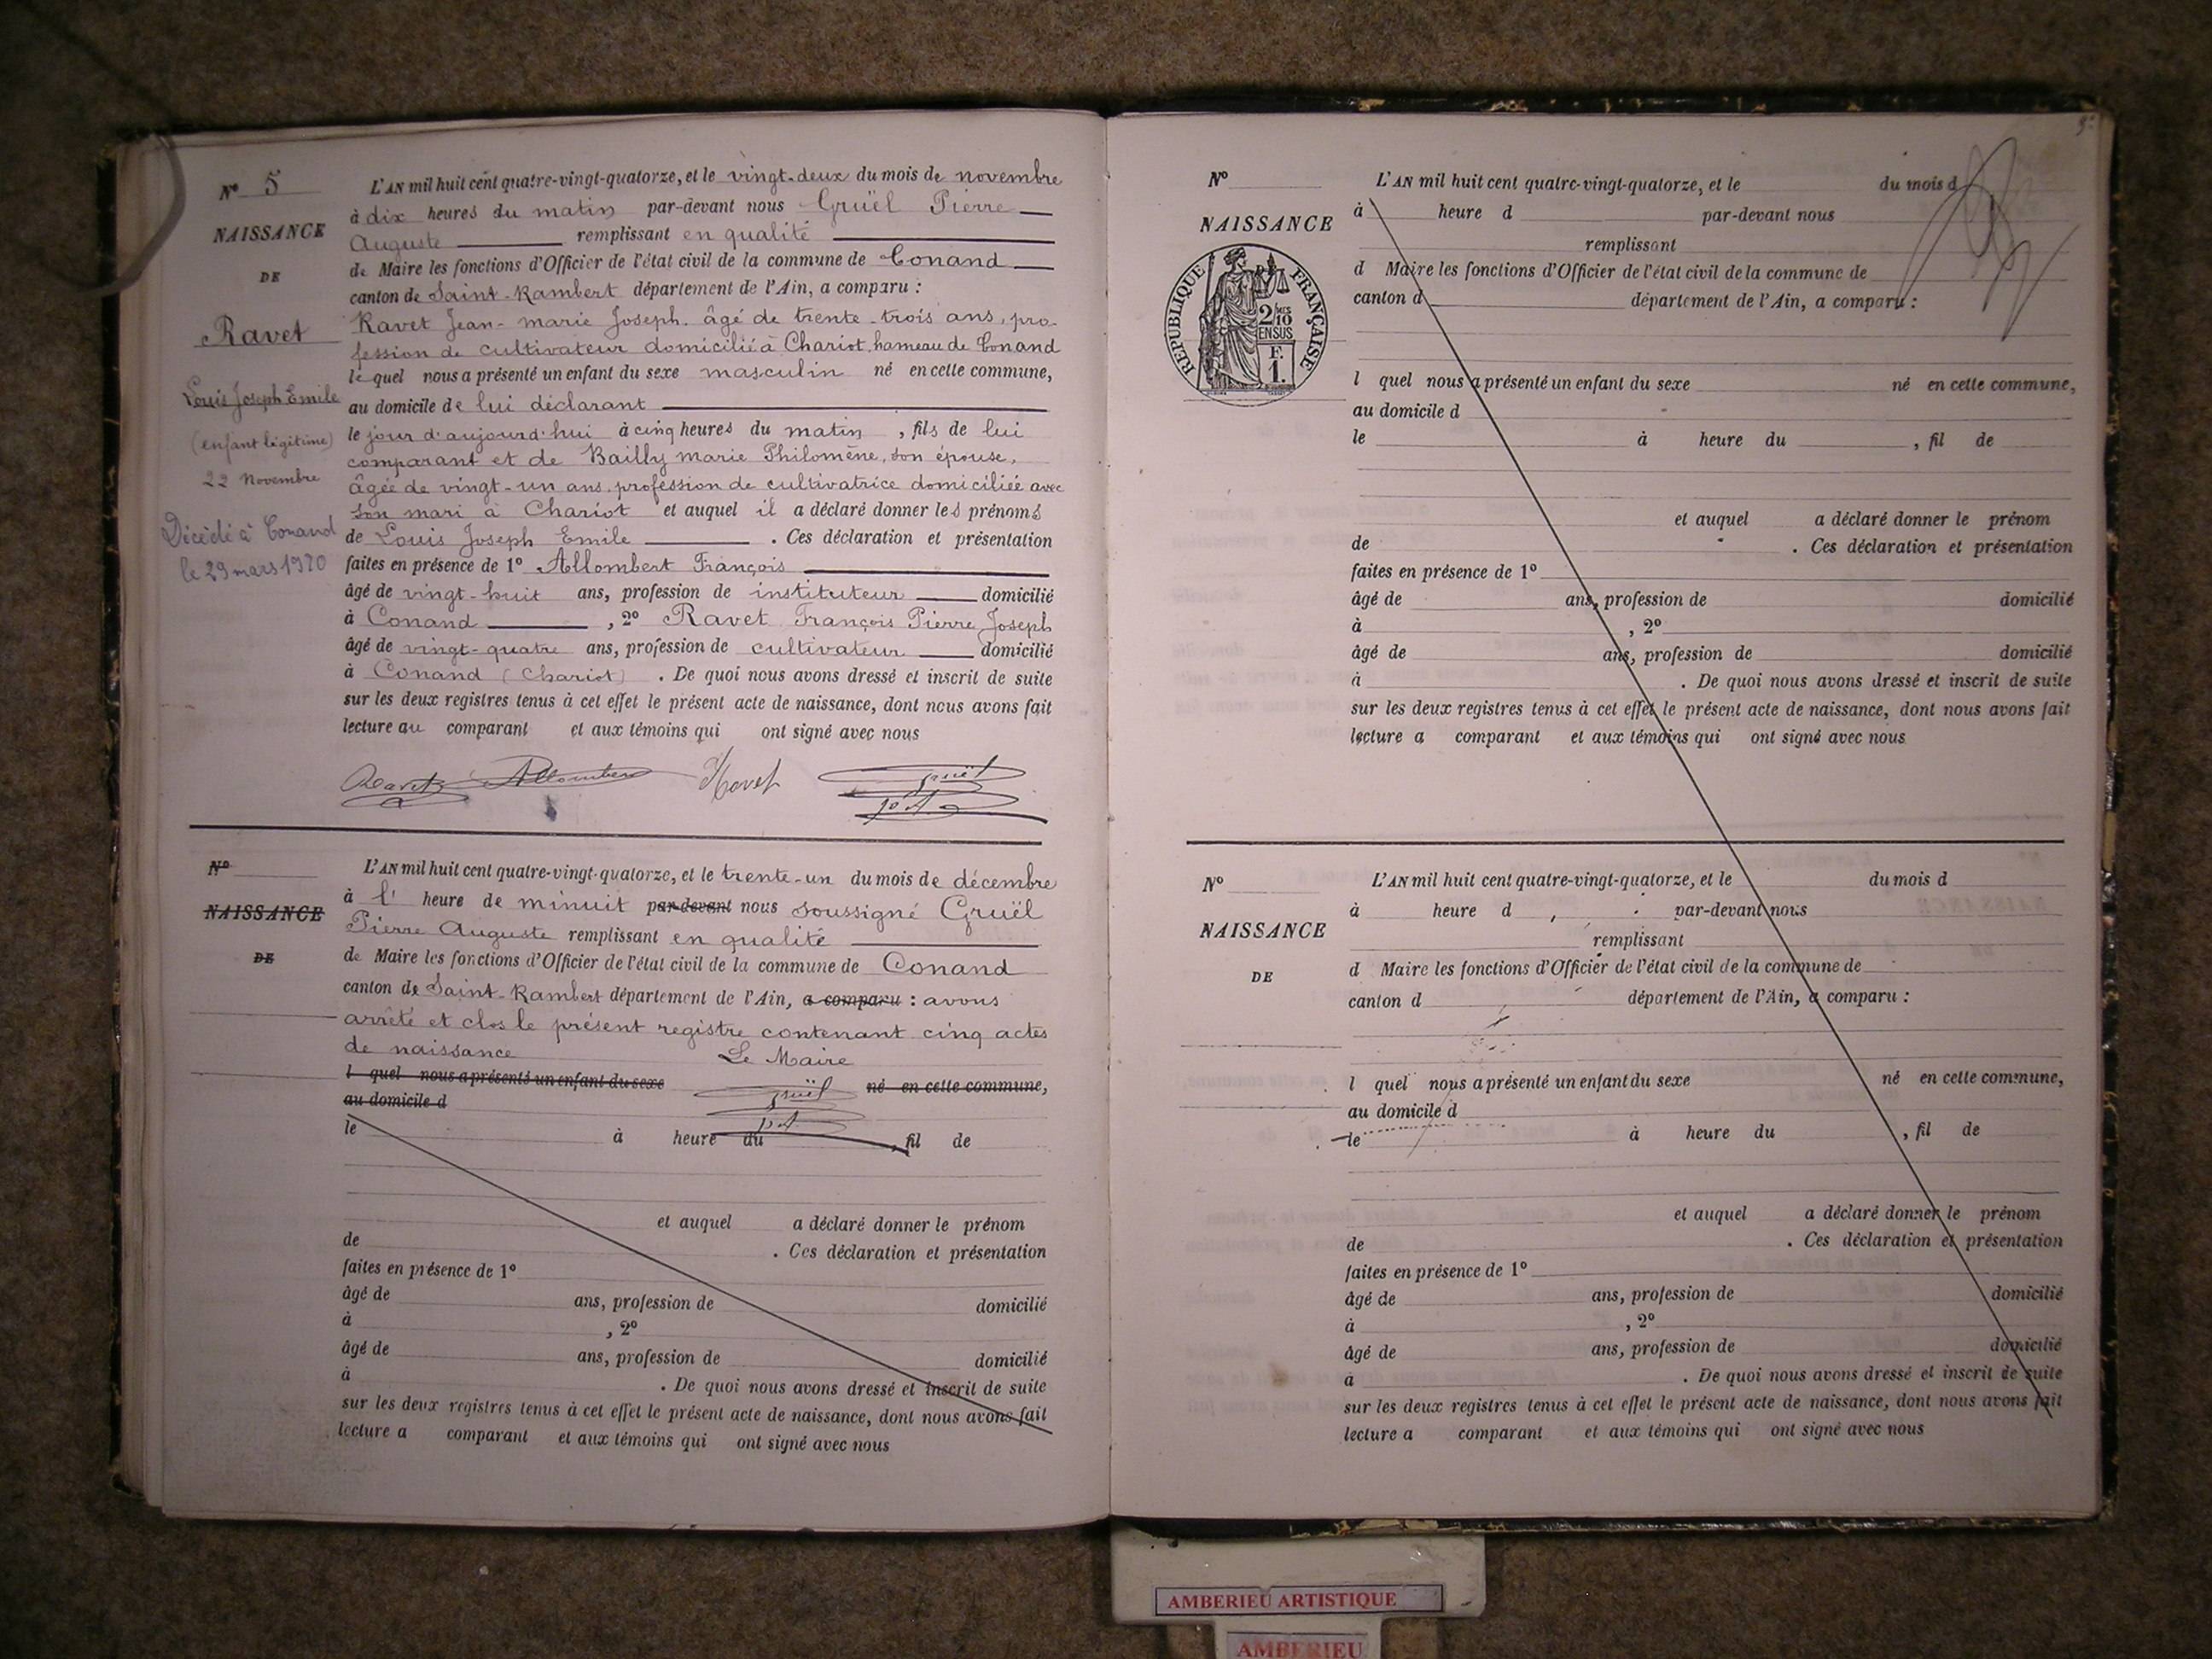 Nº 5
NAISSANCE
DE
Ravet
Louis Joseph Emile
(enfant légitime)
22 Novembre
Décédé à Conand
le 29 mars 1970
L'AN mil huit cent quatre-vingt-quatorze, et le vingt-deux du mois de novembre
à dix heures du matin par-devant nous Gruël Pierre
Auguste remplissant en qualité
de Maire les fonctions d'Officier de l'état civil de la commune de Conand
canton de Saint-Rambert département de l'Ain, a comparu :
Ravet Jean-marie Joseph. âgé de trente-trois ans, pro-
fession de cultivateur domicilié à Chariot, hameau de Conand
lequel nous a présenté un enfant du sexe masculin né en cette commune,
au domicile de lui déclarant
le jour d'aujourd'hui à cinq heures du matin, fils de lui
comparant et de Bailly marie Philomène, son épouse,
âgée de vingt-un ans, profession de cultivatrice domiciliée avec
son mari à Chariot et auquel il a déclaré donner les prénoms
de Louis Joseph Emile . Ces déclaration et présentation
faites en présence de 1º Allombert François
âgé de vingt-huit ans, profession de instituteur domicilié
à Conand , 2º Ravet François Pierre Joseph
âgé de vingt-quatre ans, profession de cultivateur domicilié
à Conand (Chariot) . De quoi nous avons dressé et inscrit de suite
sur les deux registres tenus à cet effet le présent acte de naissance, dont nous avons fait
lecture au comparant et aux témoins qui ont signé avec nous
Ravet Allombert Ravet Gruël
Nº
NAISSANCE
DE
L'AN mil huit cent quatre-vingt-quatorze, et le trente-un du mois de décembre
à l' heure de minuit par-devant nous soussigné Gruël
Pierre Auguste remplissant en qualité
de Maire les fonctions d'Officier de l'état civil de la commune de Conand
canton de Saint-Rambert département de l'Ain, a comparu : avons
arrêté et clos le présent registre contenant cinq actes
de naissance Le Maire
l quel nous a présenté un enfant du sexe né en cette commune,
au domicile d Gruël
le à heure du , fil de
et auquel a déclaré donner le prénom
de . Ces déclaration et présentation
faites en présence de 1º
âgé de ans, profession de domicilié
à , 2º
âgé de ans, profession de domicilié
à . De quoi nous avons dressé et inscrit de suite
sur les deux registres tenus à cet effet le présent acte de naissance, dont nous avons fait
lecture a comparant et aux témoins qui ont signé avec nous
Nº
NAISSANCE
RÉPUBLIQUE FRANÇAISE
2/10
EN SUS
F.
1.
L'AN mil huit cent quatre-vingt-quatorze, et le du mois d
à heure d par-devant nous
remplissant
d Maire les fonctions d'Officier de l'état civil de la commune de
canton d département de l'Ain, a comparu :
l quel nous a présenté un enfant du sexe né en cette commune,
au domicile d
le à heure du , fil de
et auquel a déclaré donner le prénom
de . Ces déclaration et présentation
faites en présence de 1º
âgé de ans, profession de domicilié
à , 2º
âgé de ans, profession de domicilié
à . De quoi nous avons dressé et inscrit de suite
sur les deux registres tenus à cet effet le présent acte de naissance, dont nous avons fait
lecture a comparant et aux témoins qui ont signé avec nous
Nº
NAISSANCE
DE
L'AN mil huit cent quatre-vingt-quatorze, et le du mois d
à heure d par-devant nous
remplissant
d Maire les fonctions d'Officier de l'état civil de la commune de
canton d département de l'Ain, a comparu :
l quel nous a présenté un enfant du sexe né en cette commune,
au domicile d
le à heure du , fil de
et auquel a déclaré donner le prénom
de . Ces déclaration et présentation
faites en présence de 1º
âgé de ans, profession de domicilié
à , 2º
âgé de ans, profession de domicilié
à . De quoi nous avons dressé et inscrit de suite
sur les deux registres tenus à cet effet le présent acte de naissance, dont nous avons fait
lecture a comparant et aux témoins qui ont signé avec nous
AMBERIEU ARTISTIQUE
AMBERIEU